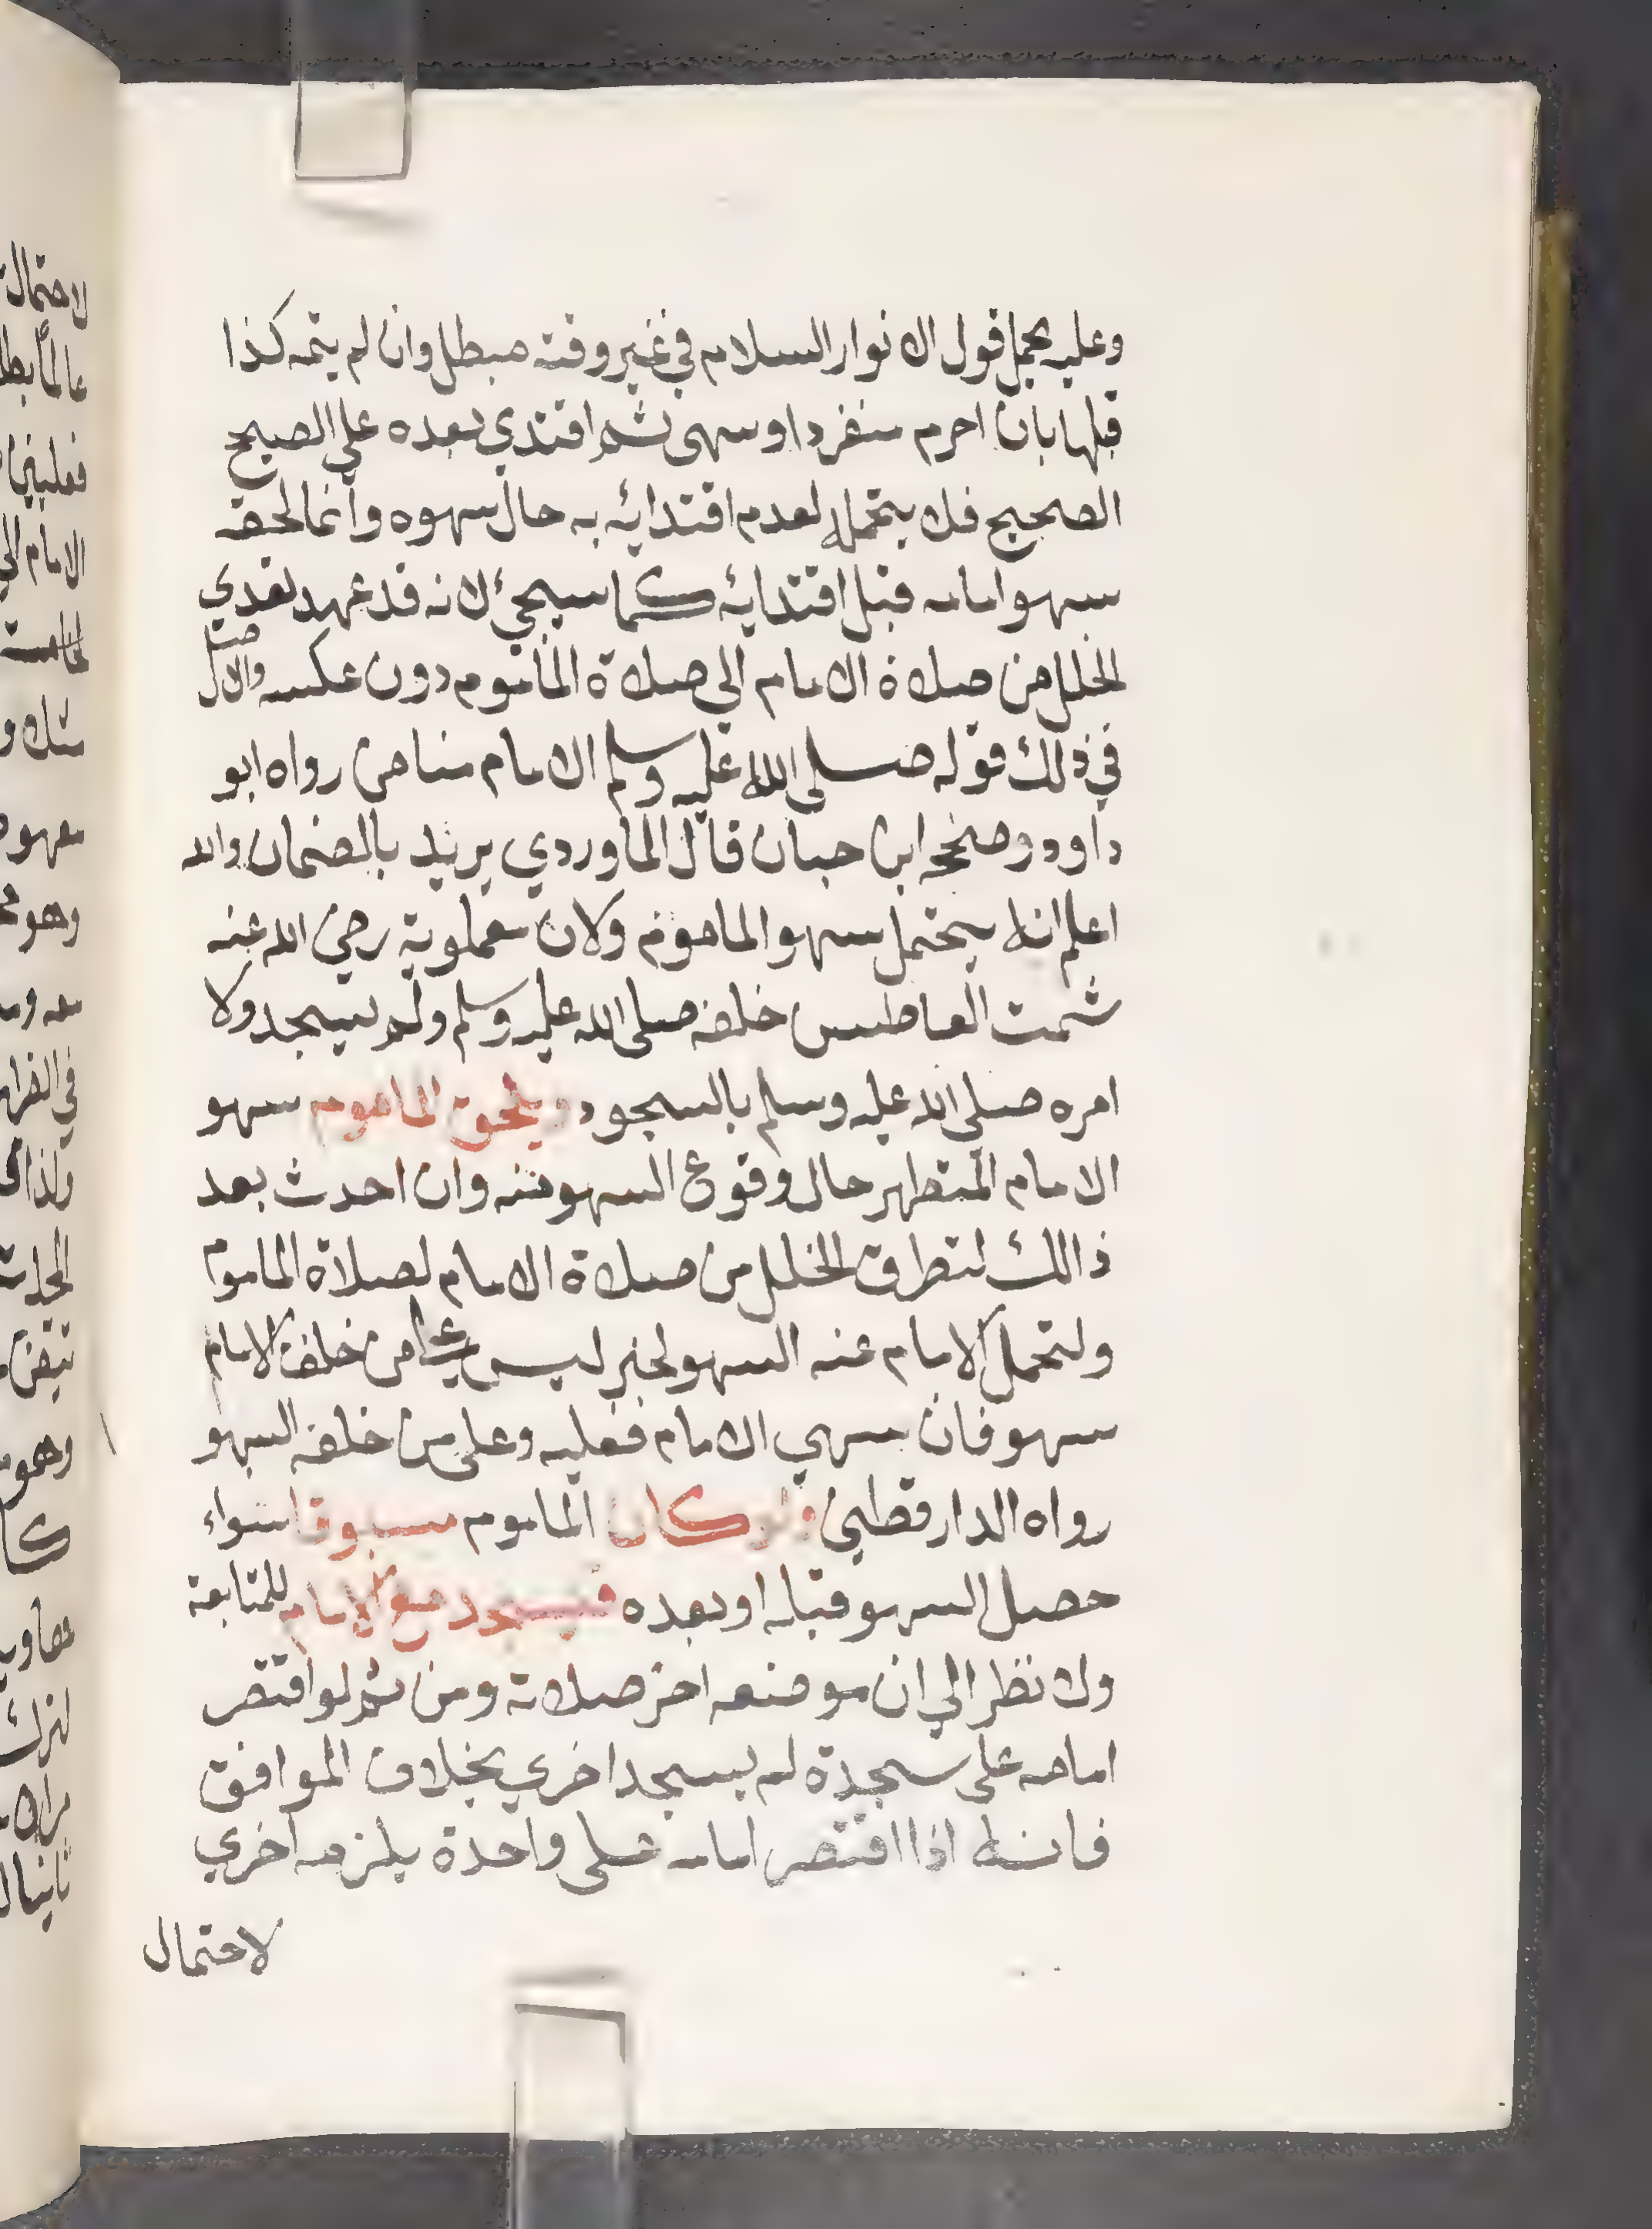 وعليه يحمل قول الانوار السلام في غير وقته مبطل وان لم يتمه كذا
قبلها بان احرم منفردا وسهى ثم اقتدي بعده على الصحيح
الصحيح فلا يتحمله لعدم اقتدائه به حال سهوه وانما لحقه
سهو امامه قبل اقتدائه كما سيجيء لانه قد عهد تعدي
الخلل من صلاة الامام الي صلاة الماموم دون عكسه والاصل
في ذلك قوله صلى الله عليه وسلم الامام ضامن رواه ابو
داود وصححه ابن حبان قال الماوردي يريد بالضمان والله
اعلم انه يتحمل سهو الماموم ولان معاوية رضي الله عنه
شمت العاطس خلفه صلى الله عليه وسلم ولم يسجد ولا
امره صلي الله عليه وسلم بالسجود ويلحق الماموم سهو
الامام المتطهر حال وقوع السهو منه وان احدث بعد
ذالك لتطرق الخلل من صلاة الامام لصلاة الماموم
ولتحمل الامام عنه السهو لخبر ليس على من خلف الامام
سهو فان سهي الامام فعليه وعلى من خلفه السهو
رواه الدارقطني ولو كان الماموم مسبوقا سواء
حصل السهو قبله او بعده فيسجد مع الامام للمتابعة
ولا نظر الي ان موضعه اخر صلاته ومن ثم لو اقتصر
امامه على سجدة لم يسجد اخري بخلاف الموافق
فانه اذا اقتصر امامه على واحدة يلزمه اخري
لاحتمال